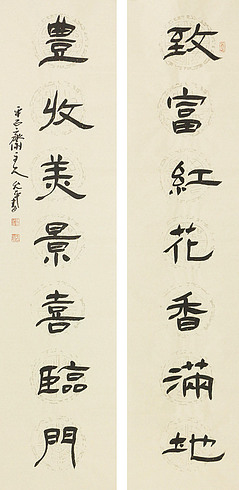 致富紅花香滿地
豐收美景喜臨門